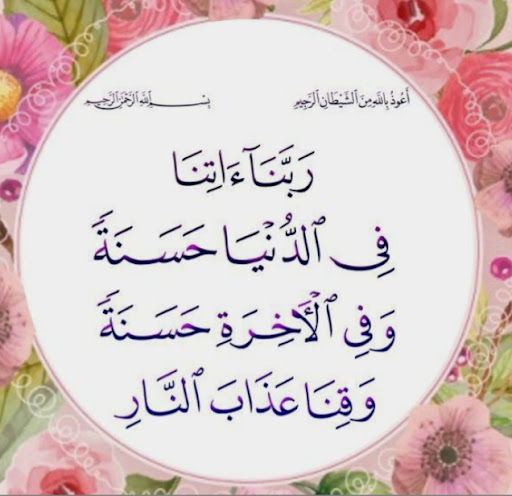 أَعُوذُ بِاللَّهِ مِنَ ٱلشَّيْطَانِ ٱلرَّجِيمِ
بِسْمِ ٱللَّهِ ٱلرَّحْمَٰنِ ٱلرَّحِيمِ
رَبَّنَآ ءَاتِنَا
فِي ٱلدُّنْيَا حَسَنَةٗ
وَفِي ٱلْأٓخِرَةِ حَسَنَةٗ
وَقِنَا عَذَابَ ٱلنَّارِ